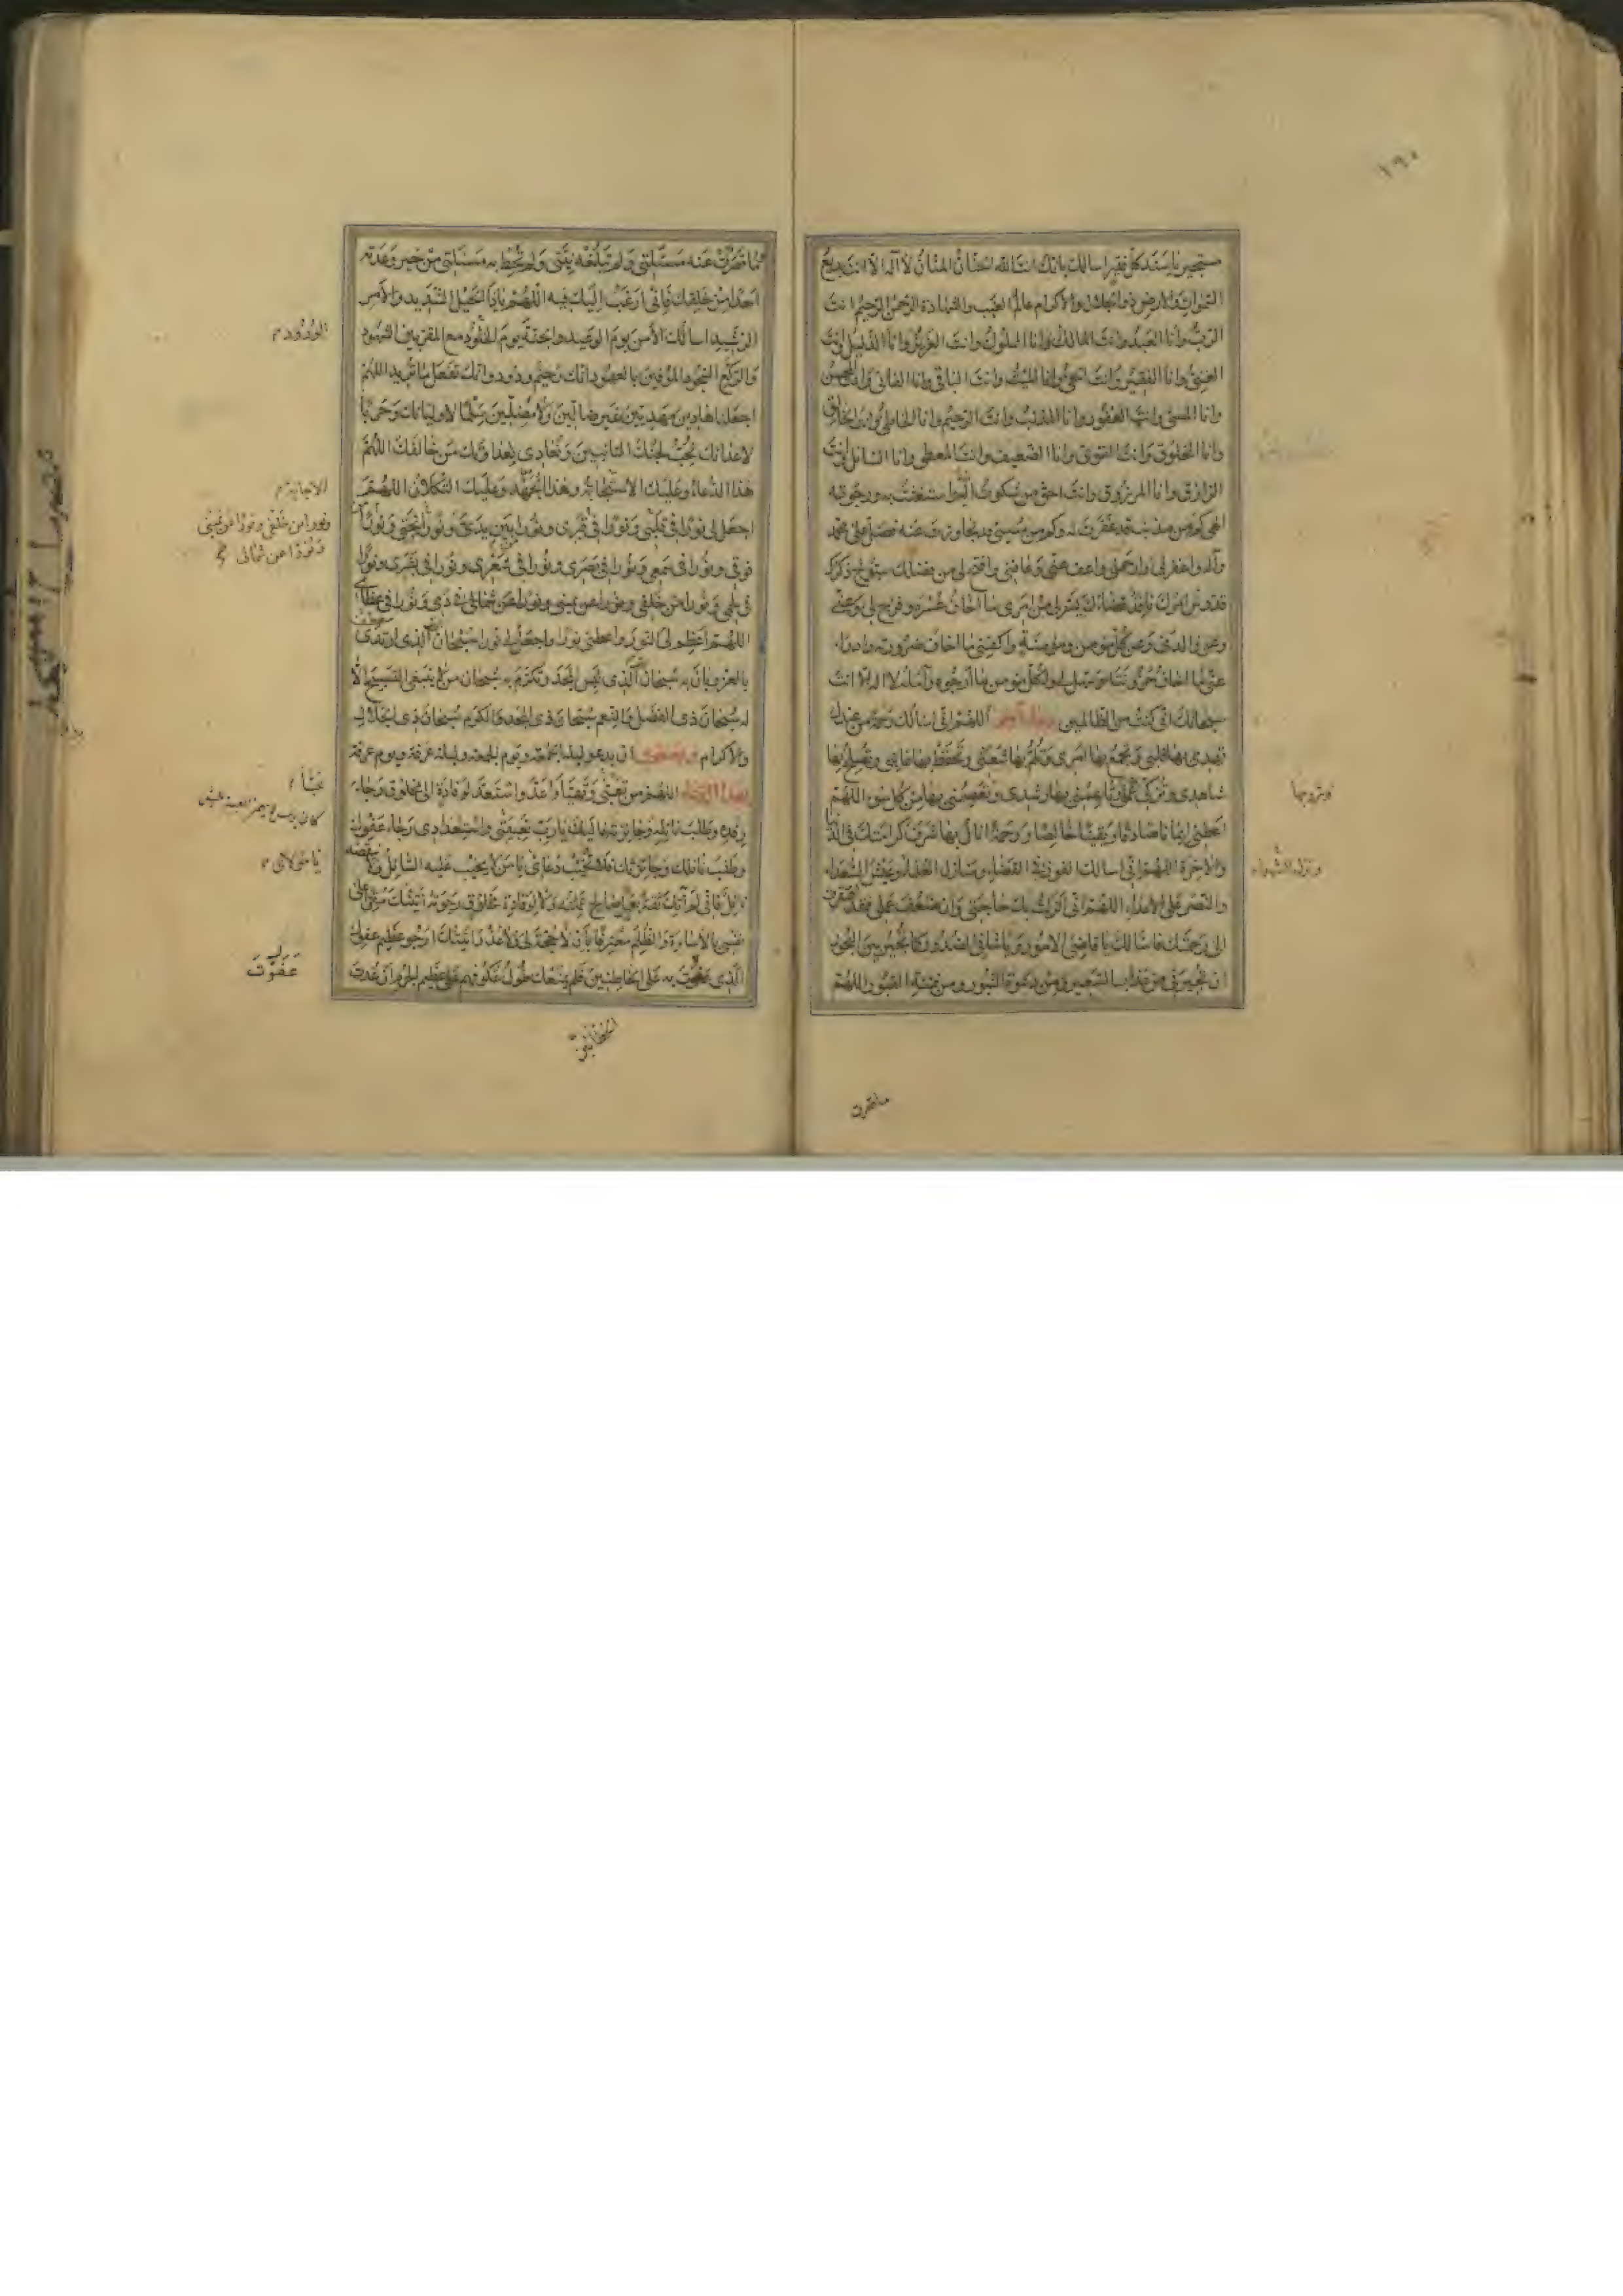 ١٩٠
مستجير يا سند كل فقير اسالك بانك انت الله الحنان المنان لا اله الا انت بديع
السموات والارض ذو الجلال والاكرام عالم الغيب والشهادة الرحمن الرحيم انت
الرب وانا العبد وانت المالك وانا المملوك وانت العزيز وانا الذليل وانت
الغنى وانا الفقير وانت الحى وانا الميت وانت الباقى وانا الفانى وانت المحسن
وانا المسئ وانت الغفور وانا المذنب وانت الرحيم وانا الخاطى وانت الخالق
وانا المخلوق وانت القوى وانا الضعيف وانت المعطى وانا السائل وانت
الرازق وانا المرزوق وانت احق من شكوت اليه واستغثت به ورجوته
الهى كم من مذنب قد غفرت له وكم من مسيئ قد تجاوزت عنه فصل على محمد
وآله واغفر لى وارحمنى واعف عنى وعافنى وافتح لى من فضلك سبوح ذكرك
قدوس امرك نافذ قضاؤك يسر لى من امرى ما اخاف عسره وفرج لى وعنى
وعن والدى وعن كل مؤمن ومؤمنة واكفنى ما اخاف ضرورته وادرا
عنى ما اخاف حزونته وسهل لى ولكل مؤمن ما ارجوه وآمله لا اله الا انت
سبحانك انى كنت من الظالمين دعاء آخر اللهم انى اسالك رحمة من عندك
تهدى بها قلبى وتجمع بها امرى وتلم بها شعثى وتحفظ بها غايبى وتصلح بها
شاهدى وتزكى بها عملى وتلهمنى بها رشدى وتعصمنى بها من كل سوء اللهم
اعطنى ايمانا صادقا ويقينا خالصا ورحمة انال بها شرف كرامتك فى الدنيا
والاخرة اللهم انى اسالك الفوز فى القضاء ومنازل العلماء وعيش السعداء
والنصر على الاعداء اللهم انى انزلت بك حاجتى وان ضعف عملى فقد افتقرت
الى رحمتك فاسالك يا قاضى الامور ويا شافى الصدور كما تجير بين البحور
ان تجيرنى من عذاب السعير ومن دعوة الثبور ومن فتنة القبور اللهم
ما قصرت
ما قصرت عنه مسئلتى ولم تبلغه نيتى ولم تحط به مسئلتى من خير وعدته
احدا من خلقك فانى ارغب اليك فيه اللهم يا ذا الحبل الشديد والامر
الرشيد اسالك الامن يوم الوعيد والجنة يوم الخلود مع المقربين الشهود
والركع السجود الموفين بالعهود انك رحيم ودود وانك تفعل ما تريد اللهم
اجعلنا هادين مهديين غير ضالين ولا مضلين سلما لاوليائك وحربا
لاعدائك نحب لحبك التائبين ونعادى بعداوتك من خالفك اللهم
هذا الدعاء وعليك الاستجابة وهذا الجهد وعليك التكلان اللهم
اجعل لى نورا فى قلبى ونورا فى قبرى ونورا بين يدى ونورا تحتى ونورا
فوقى ونورا فى سمعى ونورا فى بصرى ونورا فى شعرى ونورا فى بشرى ونورا
فى لحمى ونورا من خلفى ونورا عن يمينى ونورا عن شمالى فى دمى ونورا فى عظامى
اللهم اعظم لى النور واعطنى نورا واجعل لى نورا سبحان الذى ارتدى
بالعز وبان به سبحان الذى لبس المجد وتكرم به سبحان من لا ينبغى التسبيح الا
له سبحان ذى الفضل والنعم سبحان ذى المجد والكرم سبحان ذى الجلال
والاكرام ويستحب ان يدعو ليلة الجمعة ويوم الجمعة وليلة عرفة ويوم عرفة
بهذا الدعاء اللهم من تعبى وتهيا واعد واستعد لوفادة الى مخلوق رجاء
رفده وطلب نائله وجائزته فاليك يا رب تعبيتى واستعدادى رجاء عفوك
وطلب نائلك وجائزتك فلا تخيب دعائى يا من لا يخيب عليه السائل ولا ينقصه
نائل فانى لم آتك ثقة بعمل صالح عملته ولا لوفادة مخلوق رجوته اتيتك مقرا على
نفسى بالاساءة والظلم معترفا بان لا حجة لى ولا عذر اتيتك ارجو عظيم عفوك
الذى عفوت به على الخاطئين فلم يمنعك طول عكوفهم على عظيم الجرم ان عدت
الودود
الاجابة
ونورا من خلفى ونورا عن يمينى
ونورا عن شمالى
يا مولاى
عفوت